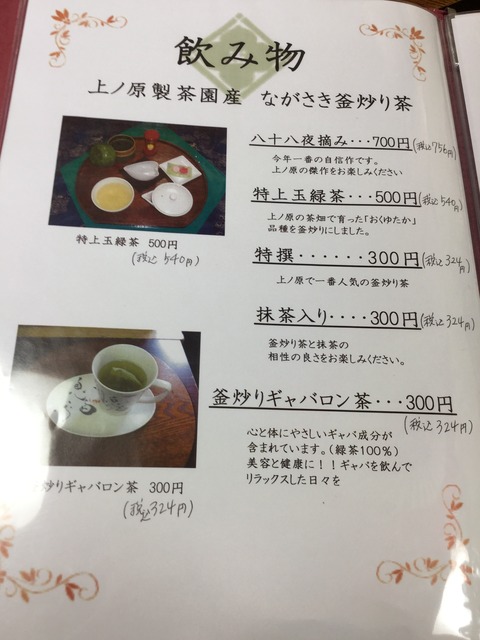 飲み物
上ノ原製茶園産 ながさき釜炒り茶
八十八夜摘み・・・700円(税込756円)
今年一番の自信作です。
上ノ原の傑作をお楽しみください
特上玉緑茶・・・500円(税込540円)
上ノ原の茶畑で育った「おくゆたか」
品種を釜炒りにしました。
特撰・・・・・・300円(税込324円)
上ノ原で一番人気の釜炒り茶
抹茶入り・・・・300円(税込324円)
釜炒り茶と抹茶の
相性の良さをお楽しみください。
釜炒りギャバロン茶・・・300円
(税込324円)
心と体にやさしいギャバ成分が
含まれています。(緑茶100%)
美容と健康に!!ギャバを飲んで
リラックスした日々を
特上玉緑茶 500円
(税込540円)
炒りギャバロン茶 300円
(税込324円)